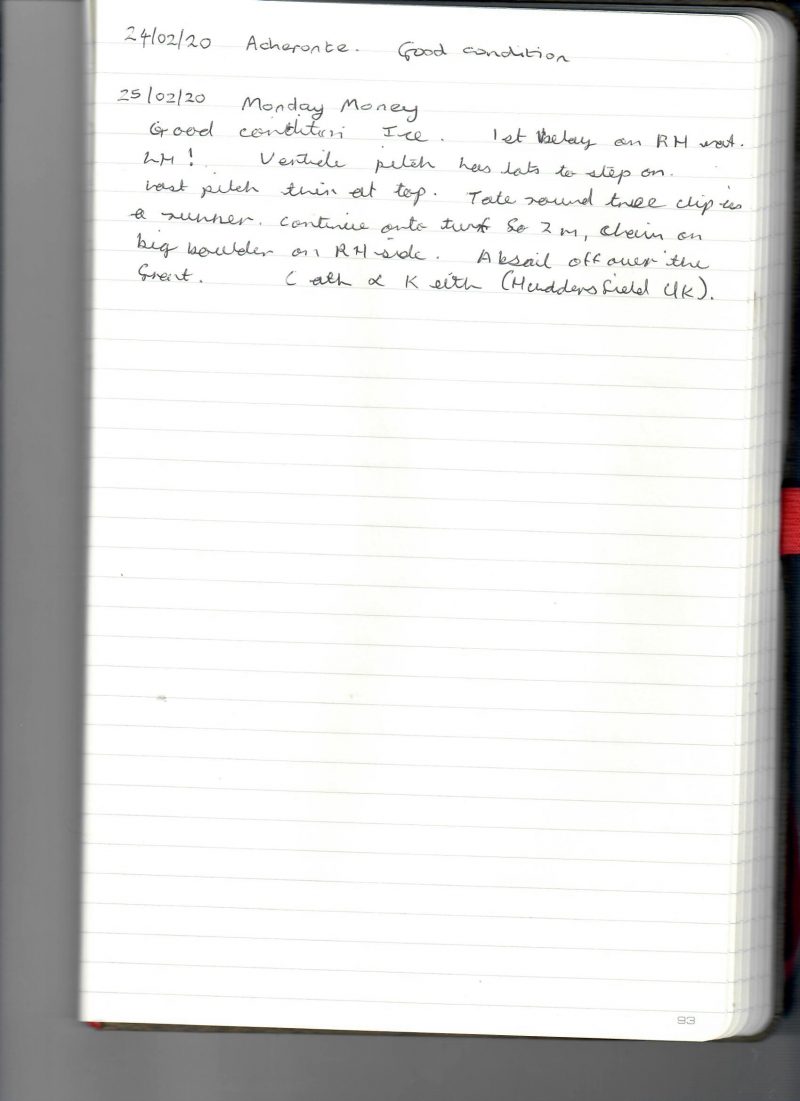 24/02/20 Acheronte. Good condition
25/02/20 Monday Money
Good condition Ice. 1st belay on RH not.
LH! Verticle pitch has lots to step on.
Last pitch thin at top. Tate round tree clip as
a runner. Continue onto turf for 2m, chain on
big boulder on RH side. Absail off over the
Cath & Keith (Huddersfield UK).
93